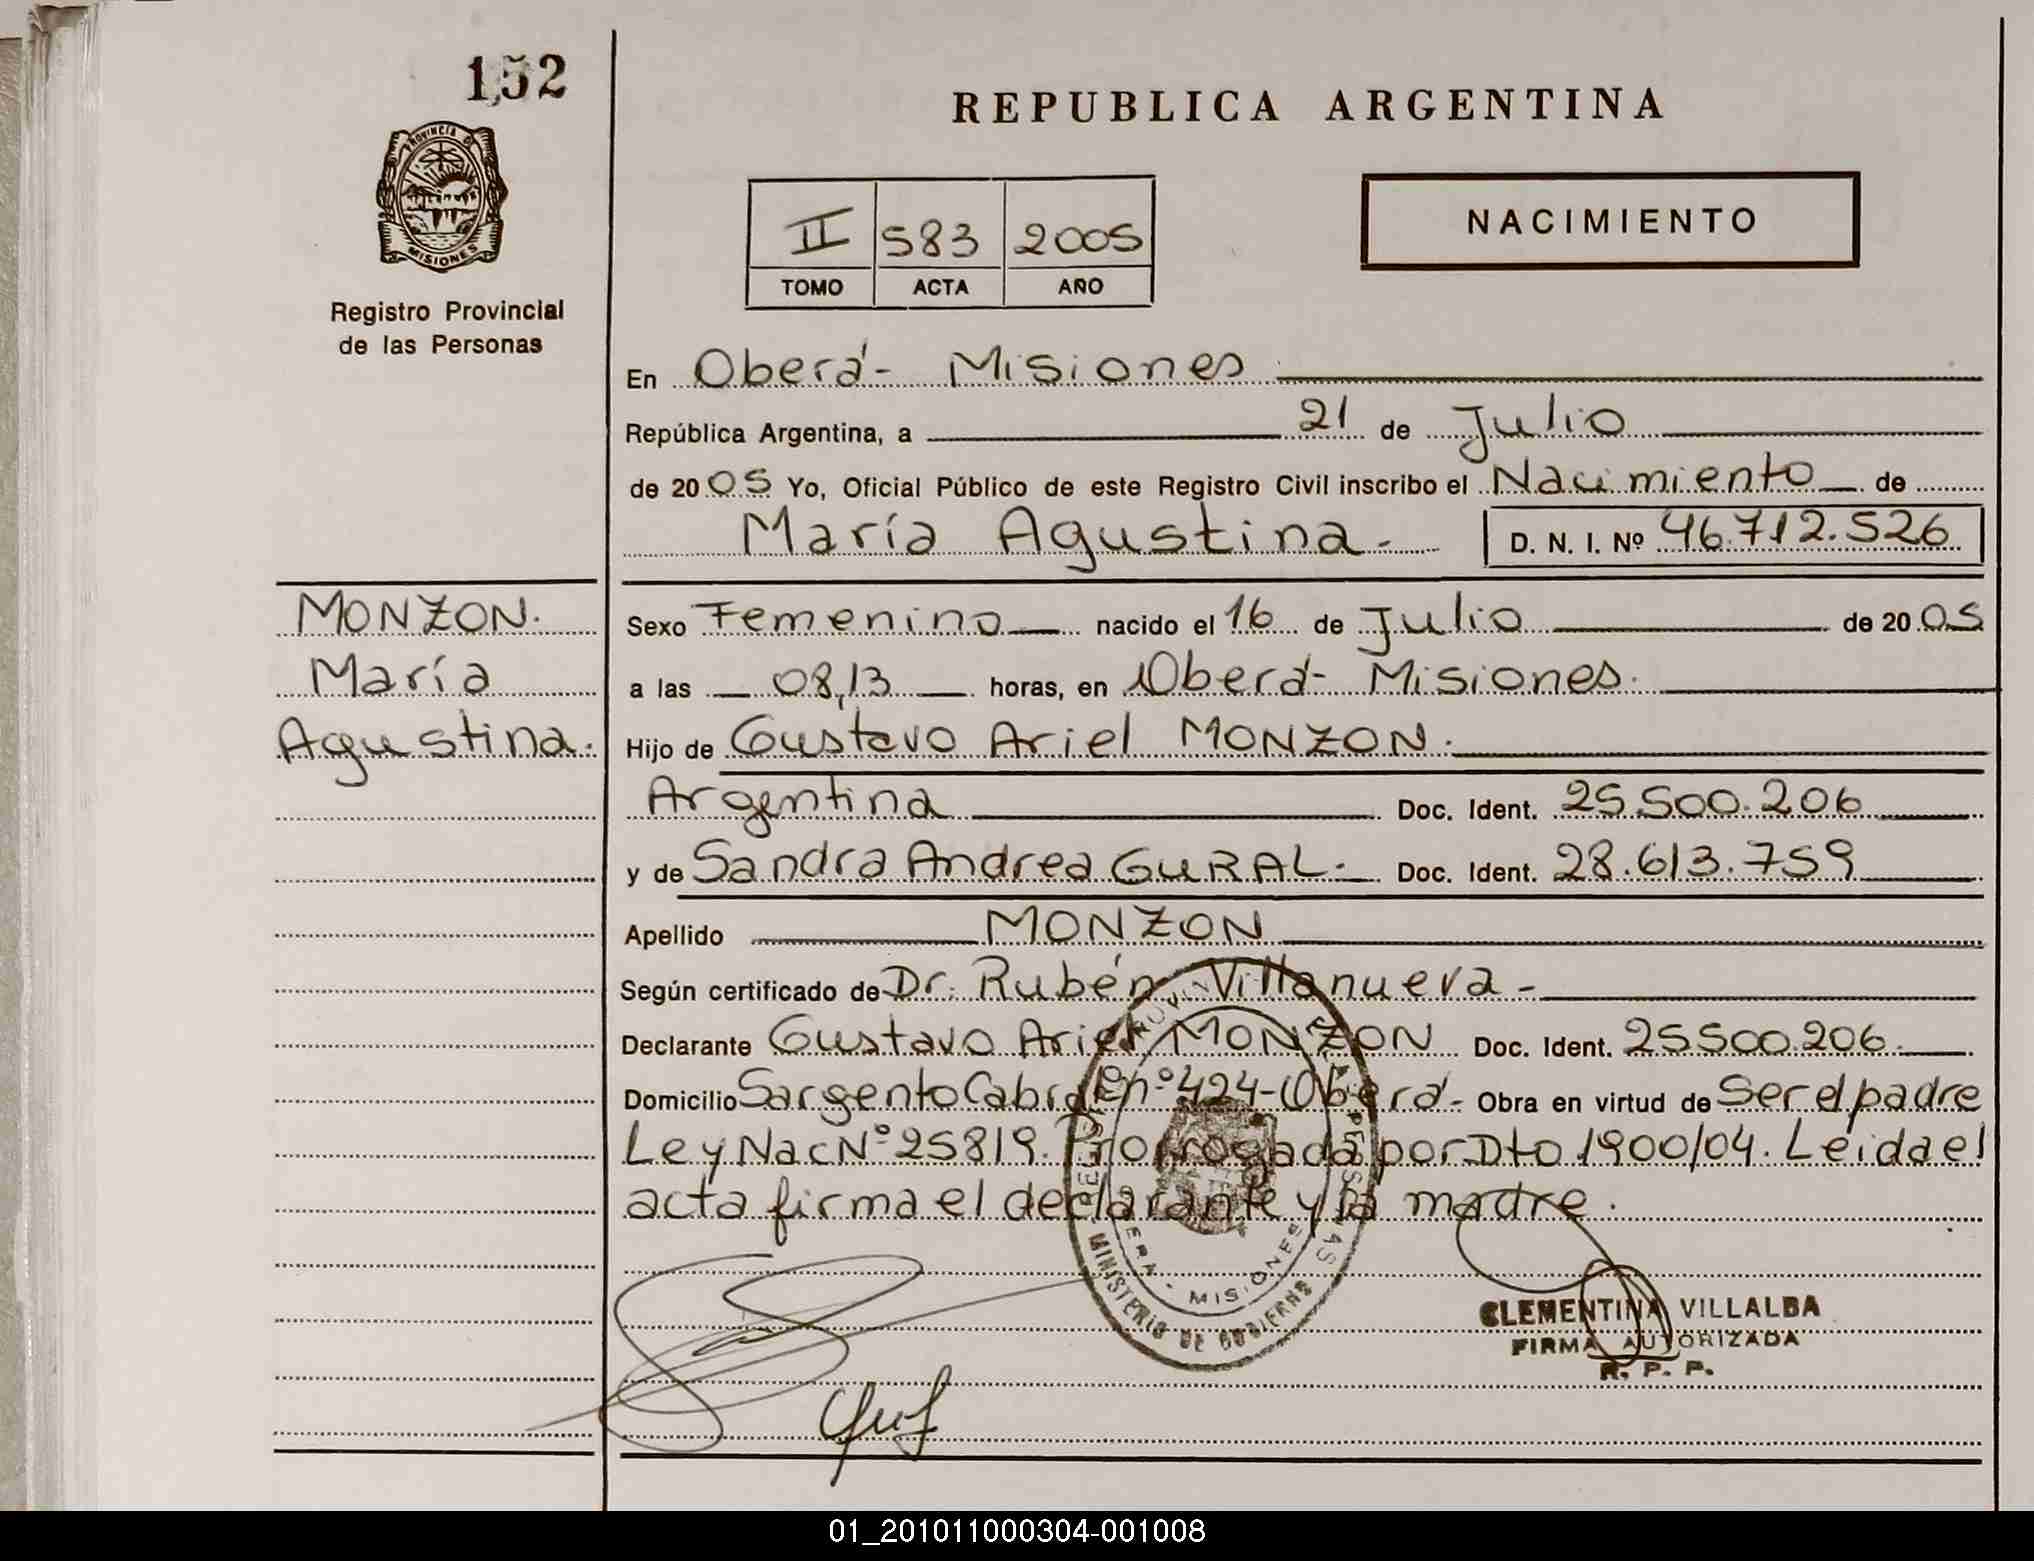 152
REPUBLICA ARGENTINA
PROVINCIA DE
MISIONES
Registro Provincial
de las Personas
II 583 2005
TOMO ACTA AÑO
NACIMIENTO
En Oberá- Misiones
República Argentina, a 21 de Julio
de 2005 Yo, Oficial Público de este Registro Civil inscribo el Nacimiento de
María Agustina- D. N. I. Nº 46.712.526
MONZON.
María
Agustina.
Sexo Femenino nacido el 16 de Julio de 2005
a las 08,13 horas, en Oberá- Misiones.
Hijo de Gustavo Ariel MONZON.
Argentina Doc. Ident. 25.500.206
y de Sandra Andrea GURAL- Doc. Ident. 28.613.759
Apellido MONZON
Según certificado de Dr. Rubén Villanueva-
Declarante Gustavo Ariel MONZON Doc. Ident. 25500.206.
Domicilio Sargento Cabral nº 424-Oberá- Obra en virtud de Ser el padre
Ley Nac Nº 25819. Prorrogada por Dto 1900/04. Leida el
acta firma el declarante y la madre.
OBERA - MISIONES
MINISTERIO DE GOBIERNO
CLEMENTINA VILLALBA
FIRMA AUTORIZADA
R. P. P.
01_201011000304-001008